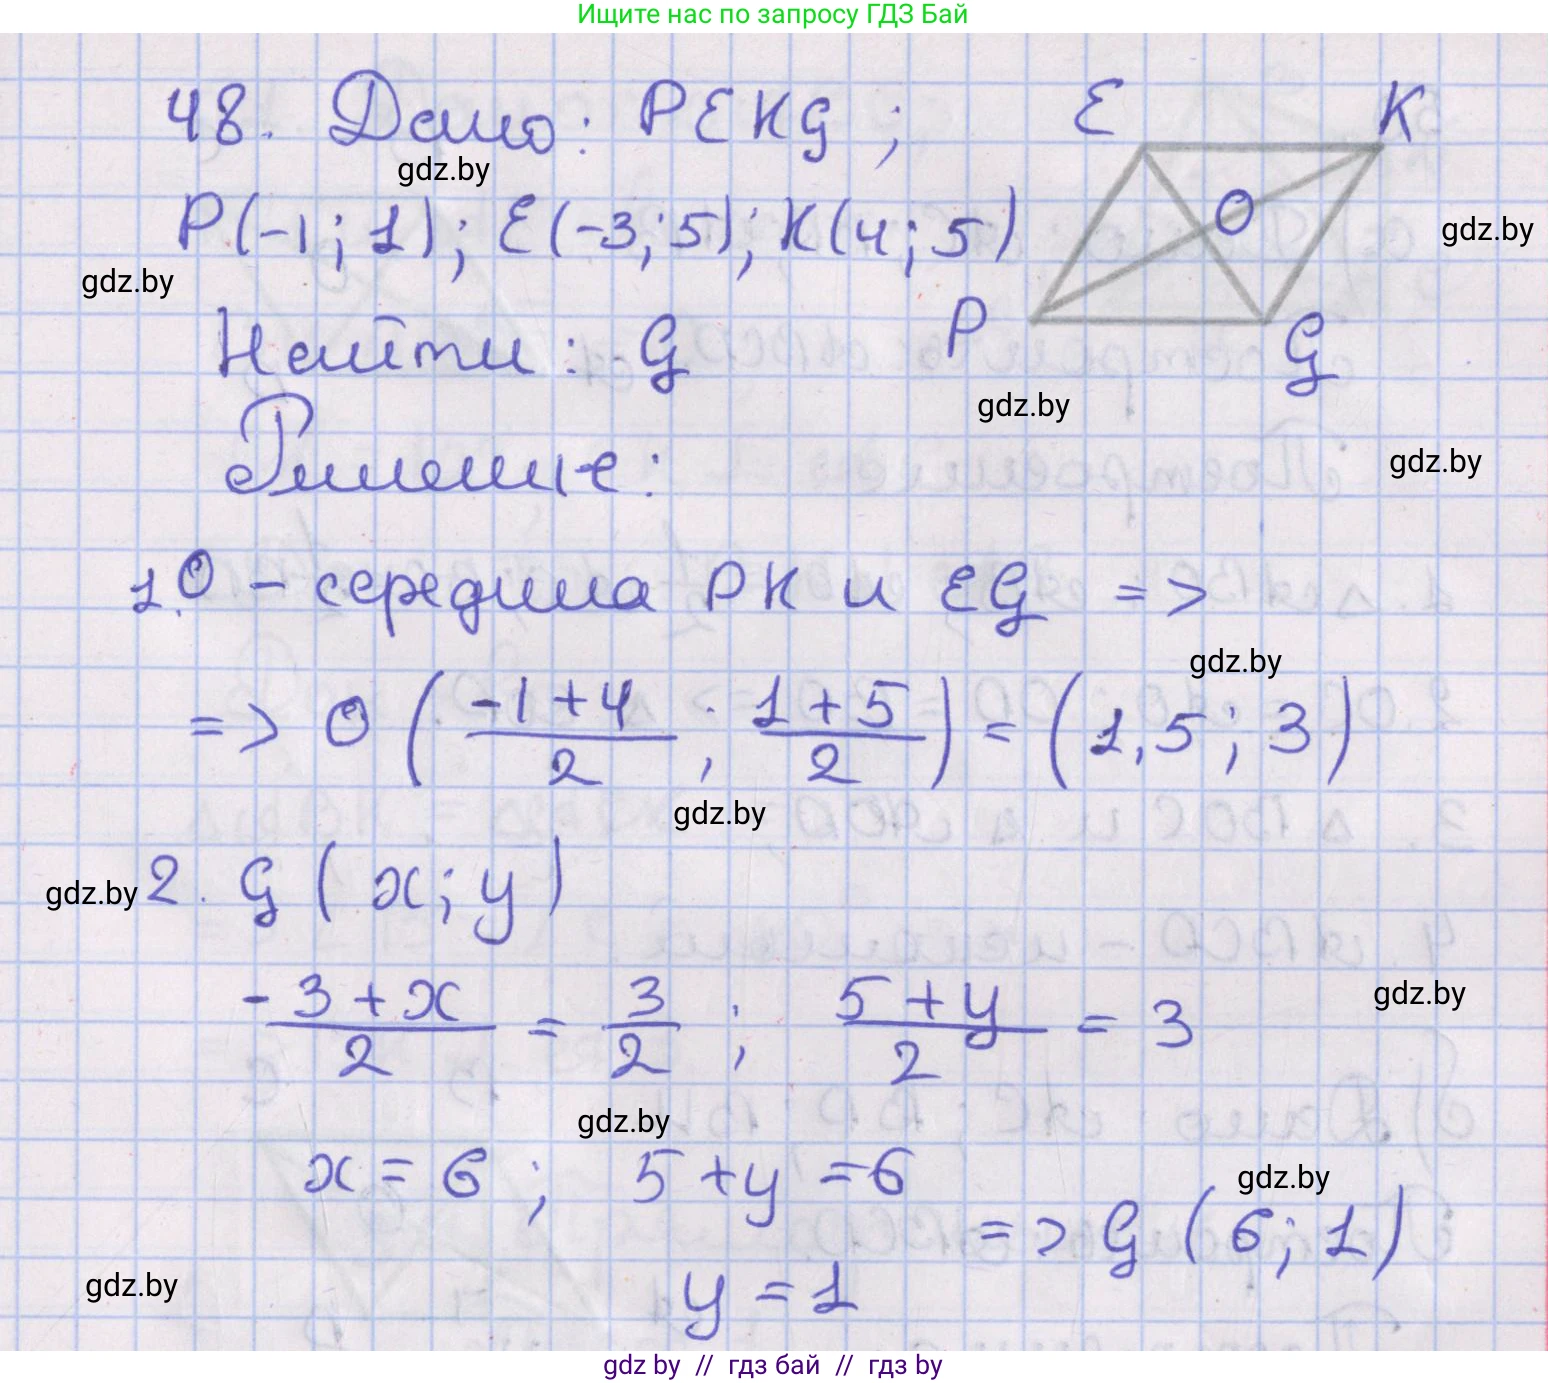 Ищите нас по запросу ГДЗ Бай
48. Дано: PEKG;
E K
gdz.by
P(-1; 1); E(-3; 5); K(4; 5)
O
gdz.by
gdz.by
Найти: G
P G
gdz.by
Решение:
gdz.by
1. O - середина PK и EG =>
gdz.by
=> O (\frac{-1+4}{2}; \frac{1+5}{2}) = (1,5; 3)
gdz.by
gdz.by
2. G (x; y)
\frac{-3+x}{2} = \frac{3}{2}; \frac{5+y}{2} = 3
gdz.by
gdz.by
x = 6; 5 + y = 6
gdz.by
=> G (6; 1)
gdz.by
y = 1
gdz by // гдз бай // гдз by